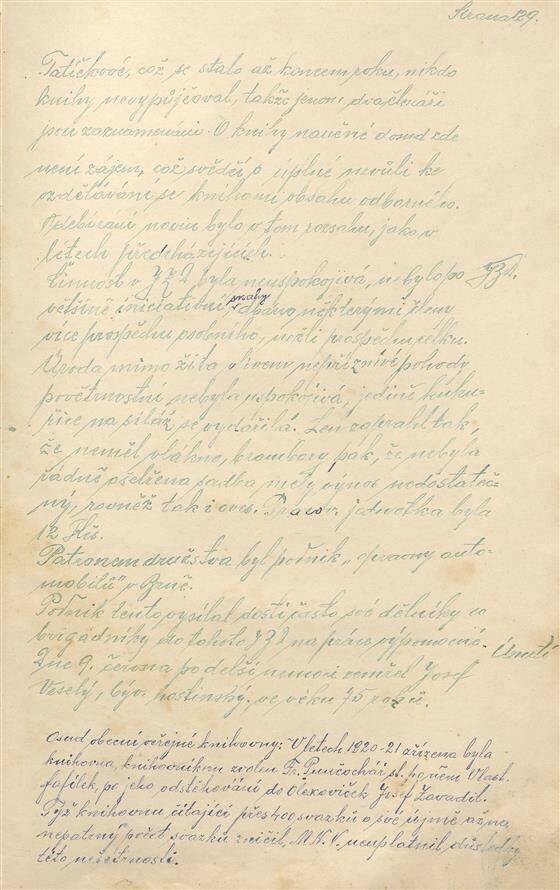 Strana 129.
Tatíčkové, což se stalo až koncem roku, nikdo
knihy nevypůjčoval, takže jenom dva čtenáři
jsou zaznamenáni. O knihy naučné dosud zde
není zájem, což svědčí o úplné nevůli ke
vzdělávání se knihami obsahu odborného.
Odebírání novin bylo v tom rozsahu, jako v
létech předcházejících.
Činnost v JZD byla neuspokojivá, nebylo po JZD.
většině iniciativní snahy dbáno některými členy
více prospěchu osobního, nežli prospěchu celku.
Úroda mimo žita vlivem nepříznivé pohody
povětrnostní nebyla uspokojivá, jedině kuku-
řice na siláž se vydařila. Len zaprahl tak,
že neměl vlákne, brambory pak, že nebyla
řádně ošetřena sadba měly výnos nedostateč-
ný, rovněž tak i oves. Pracov. jednotka byla
12 Kčs.
Patronem družstva byl podnik „opravny auto-
mobilů" v Brně.
Podnik tento vysílal dosti často své dělníky co
brigádníky do tohoto JZD na práce výpomocné. Úmrtí
Dne 9. června po delší nemoci zemřel Josef
Veselý, býv. hostinský, ve věku 75 roků.
Osud obecní veřejné knihovny: V letech 1920-21 zřízena byla
knihovna, knihovníkem zvolen Fr. Punčochář st. po něm Vlast.
Fafílek, po jeho odstěhování do Olexoviček Josef Zavadil.
Týž knihovnu čítající přes 400 svazků o své újmě až na
nepatrný počet svazků zničil, M.N.V. neuplatnil důsledky
této nešetrnosti.